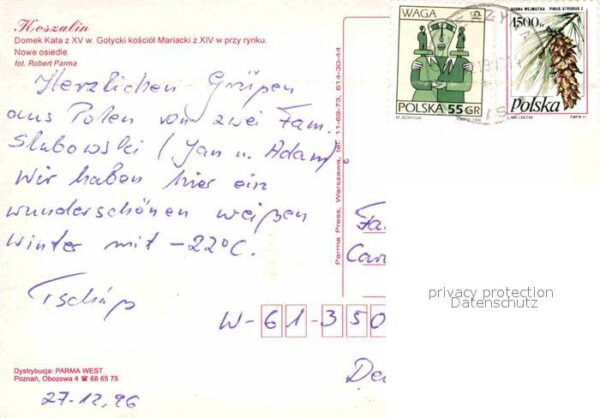 Koszalin
Domek Kata z XV w. Gotycki kościół Mariacki z XIV w przy rynku.
Nowe osiedle.
fot. Robert Parma
WAGA
POLSKA 55 GR
1500 zł
SOSNA WEJMUTKA PINUS STROBUS L.
Polska
Herzlichen Grüßen
aus Polen von zwei Fam.
Slubowski (Jan u. Adam)
Wir haben hier ein
wunderschönen weißen
Winter mit -22°C.
Tschüß
Parma Press, Warszawa, tel. 11-69-73, 614-30-44
Fa
Car
W-61-350
De
privacy protection
Datenschutz
Dystrybucja: PARMA WEST
Poznań, Obozowa 4 ☎ 68 65 75
27.12.96